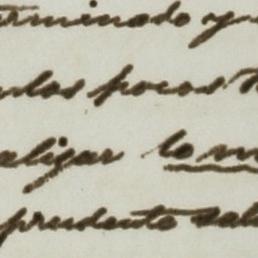 terminado y
pocos
alizar lo m
prudente sal